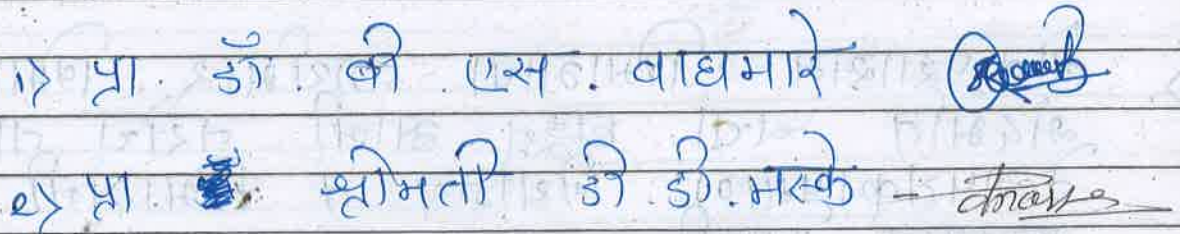 १) प्रा. डॉ. बी. एस. वाघमारे
२) प्रा. श्रीमती डी. डी. मस्के -